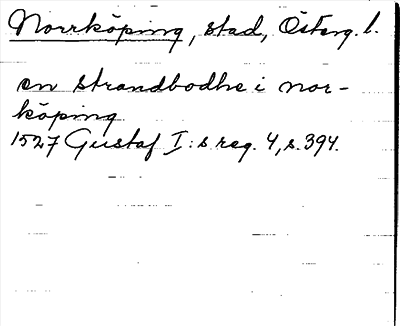 Norrköping, stad, Österg. l.
en strandbodhe i nor-
köping
1527 Gustaf I:s reg. 4, s. 394.